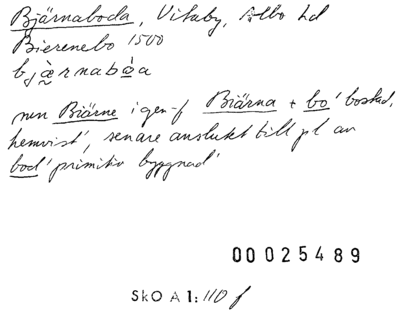 Bjärnaboda, Vitaby, Albo hd
Bierenebo 1500
bjæ̀rnabó̱a
mn Biärne i gen-f Biärna + bo 'bostad,
hemvist', senare anslukt till pl av
bod 'primitiv byggnad'
00025489
SkO A 1: 110 f